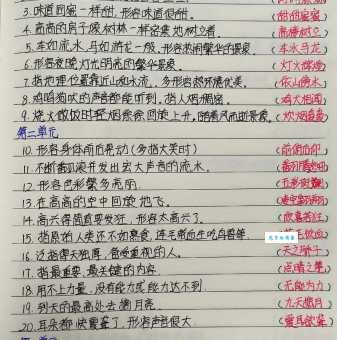 3.味道同蜜一样甜,形容味道很甜。(甜甜蜜蜜)
4.高高的房子像树林一样密集地树立着。(高楼林立)
5.车如流水,马如游龙一般,形容热闹繁华的景象。(车水马龙)
6.形容夜晚灯光明亮的繁华景象。(灯火辉煌)
7.指地理位置靠近山和水流,多形容自然环境优美。(依山傍水)
8.鸡鸣狗吠的声音都能听到,指人烟稠密。(鸡犬相闻)
9.烧火做饭时轻烟袅袅回旋上升,随着风而逝景象。(炊烟袅袅)
第二单元
10.形容身体前后晃动(多指大笑时)(前俯后仰)
11.不断翻滚并发出宏大声音的流水。
12.形容色彩繁多亮丽
13.在高高的空中回旋地飞。
14.高兴得简直要发狂,形容太高兴了。(欣喜若狂)
15.指原始人类还不知熟食,连毛带血生吃鸟兽等。(毛饮血)
16.泛指得天独厚、备受重视的人。(天之骄子)
17.指最重要、最关键的内容(点睛之笔)
18.用不上力量,没有能力或能力达不到(无能为力)
19.到天的最高处去摘月亮。(九天揽月)
20.耳朵都快震聋了,形容声音很大(震耳欲聋)